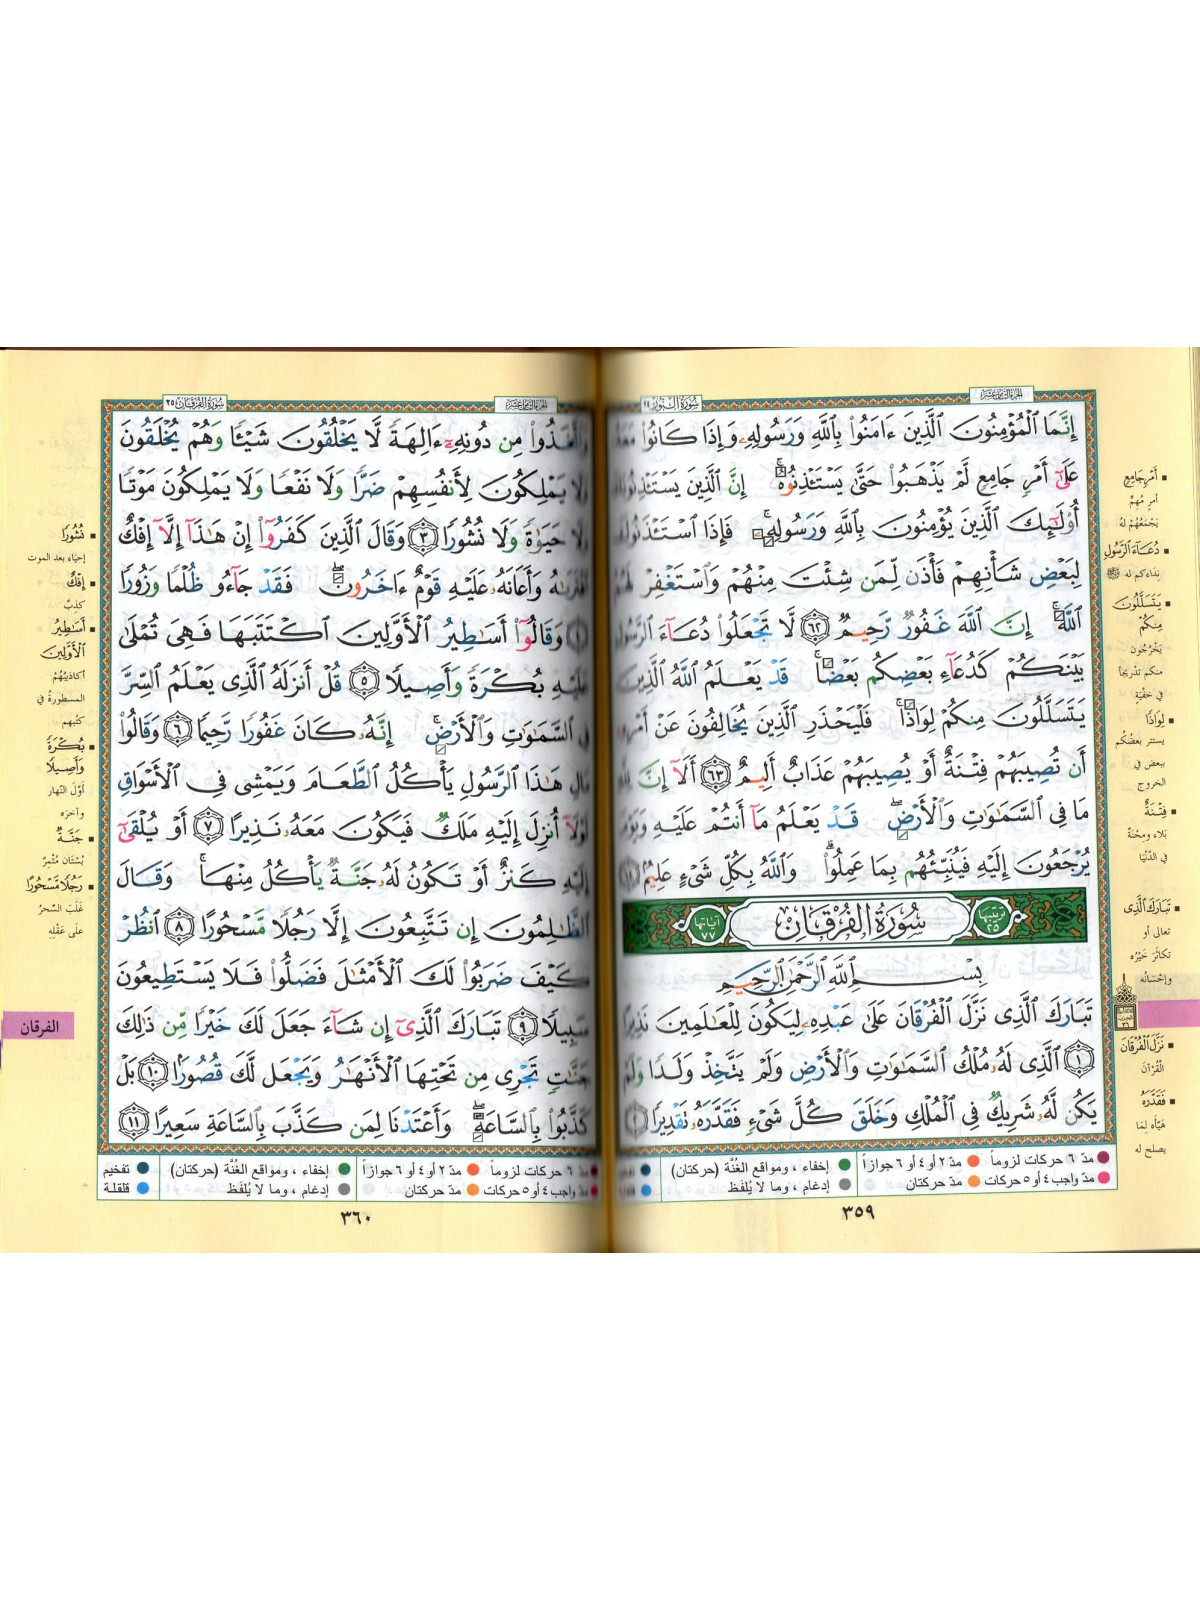 سُورَةُ النُّورِ
الجزء الثامن عشر
إِنَّمَا ٱلْمُؤْمِنُونَ ٱلَّذِينَ ءَامَنُوا۟ بِٱللَّهِ وَرَسُولِهِۦ وَإِذَا كَانُوا۟
عَلَىٰٓ أَمْرٍ جَامِعٍ لَّمْ يَذْهَبُوا۟ حَتَّىٰ يَسْتَـْٔذِنُوهُ ۚ إِنَّ ٱلَّذِينَ يَسْتَـْٔذِنُونَكَ
أُو۟لَـٰٓئِكَ ٱلَّذِينَ يُؤْمِنُونَ بِٱللَّهِ وَرَسُولِهِۦ ۚ فَإِذَا ٱسْتَـْٔذَنُوكَ
لِبَعْضِ شَأْنِهِمْ فَأْذَن لِّمَن شِئْتَ مِنْهُمْ وَٱسْتَغْفِرْ لَهُمُ
ٱللَّهَ ۚ إِنَّ ٱللَّهَ غَفُورٌ رَّحِيمٌ ﴿٦٢﴾ لَّا تَجْعَلُوا۟ دُعَآءَ ٱلرَّسُولِ
بَيْنَكُمْ كَدُعَآءِ بَعْضِكُم بَعْضًا ۚ قَدْ يَعْلَمُ ٱللَّهُ ٱلَّذِينَ
يَتَسَلَّلُونَ مِنكُمْ لِوَاذًا ۚ فَلْيَحْذَرِ ٱلَّذِينَ يُخَالِفُونَ عَنْ أَمْرِهِۦٓ
أَن تُصِيبَهُمْ فِتْنَةٌ أَوْ يُصِيبَهُمْ عَذَابٌ أَلِيمٌ ﴿٦٣﴾ أَلَآ إِنَّ لِلَّهِ
مَا فِى ٱلسَّمَـٰوَٰتِ وَٱلْأَرْضِ ۖ قَدْ يَعْلَمُ مَآ أَنتُمْ عَلَيْهِ وَيَوْمَ
يُرْجَعُونَ إِلَيْهِ فَيُنَبِّئُهُم بِمَا عَمِلُوا۟ ۗ وَٱللَّهُ بِكُلِّ شَىْءٍ عَلِيمٌۢ
ترتيبها ٢٥ سُورَةُ الفُرْقَانِ آياتها ٧٧
بِسْمِ ٱللَّهِ ٱلرَّحْمَـٰنِ ٱلرَّحِيمِ
تَبَارَكَ ٱلَّذِى نَزَّلَ ٱلْفُرْقَانَ عَلَىٰ عَبْدِهِۦ لِيَكُونَ لِلْعَـٰلَمِينَ نَذِيرًا
﴿١﴾ ٱلَّذِى لَهُۥ مُلْكُ ٱلسَّمَـٰوَٰتِ وَٱلْأَرْضِ وَلَمْ يَتَّخِذْ وَلَدًا وَلَمْ
يَكُن لَّهُۥ شَرِيكٌ فِى ٱلْمُلْكِ وَخَلَقَ كُلَّ شَىْءٍ فَقَدَّرَهُۥ تَقْدِيرًا
▪ أَمْرٍ جَامِعٍ
أمرٍ مُهمٍّ
يَجْمَعُهُمْ لهُ
▪ دُعَآءَ ٱلرَّسُولِ
نِدَاءَكم له ﷺ
▪ يَتَسَلَّلُونَ
مِنكُمْ
يَخْرُجُون
منكم تدريجاً
في خفْيَةٍ
▪ لِوَاذًا
يستتر بعضُكُم
ببعض في
الخروج
▪ فِتْنَةٌ
بَلاء ومِحْنَةٌ
في الدّنْيا
▪ تَبَارَكَ ٱلَّذِى
تعالى أو
تكاثَرَ خَيْرُه
وإحْسَانُه
▪ نَزَّلَ ٱلْفُرْقَانَ
القُرْآنَ
▪ فَقَدَّرَهُ
هَيَّأه لِمَا
يصلح له
مدّ ٦ حركات لزوماً مدّ ٢ أو ٤ أو ٦ جوازاً إخفاء ، ومواقع الغُنَّة (حركتان)
مدّ واجب ٤ أو ٥ حركات مدّ حركتان إدغام ، وما لا يُلفَظ
٣٥٩
الجزء الثامن عشر
سُورَةُ الفُرْقَانِ ٢٥
وَٱتَّخَذُوا۟ مِن دُونِهِۦٓ ءَالِهَةً لَّا يَخْلُقُونَ شَيْـًٔا وَهُمْ يُخْلَقُونَ
وَلَا يَمْلِكُونَ لِأَنفُسِهِمْ ضَرًّا وَلَا نَفْعًا وَلَا يَمْلِكُونَ مَوْتًا
وَلَا حَيَوٰةً وَلَا نُشُورًا ﴿٣﴾ وَقَالَ ٱلَّذِينَ كَفَرُوٓا۟ إِنْ هَـٰذَآ إِلَّآ إِفْكٌ
ٱفْتَرَىٰهُ وَأَعَانَهُۥ عَلَيْهِ قَوْمٌ ءَاخَرُونَ ۖ فَقَدْ جَآءُو ظُلْمًا وَزُورًا
وَقَالُوٓا۟ أَسَـٰطِيرُ ٱلْأَوَّلِينَ ٱكْتَتَبَهَا فَهِىَ تُمْلَىٰ
عَلَيْهِ بُكْرَةً وَأَصِيلًا ﴿٥﴾ قُلْ أَنزَلَهُ ٱلَّذِى يَعْلَمُ ٱلسِّرَّ
فِى ٱلسَّمَـٰوَٰتِ وَٱلْأَرْضِ ۚ إِنَّهُۥ كَانَ غَفُورًا رَّحِيمًا ﴿٦﴾ وَقَالُوا۟
مَالِ هَـٰذَا ٱلرَّسُولِ يَأْكُلُ ٱلطَّعَامَ وَيَمْشِى فِى ٱلْأَسْوَاقِ
لَوْلَآ أُنزِلَ إِلَيْهِ مَلَكٌ فَيَكُونَ مَعَهُۥ نَذِيرًا ﴿٧﴾ أَوْ يُلْقَىٰٓ
إِلَيْهِ كَنزٌ أَوْ تَكُونُ لَهُۥ جَنَّةٌ يَأْكُلُ مِنْهَا ۚ وَقَالَ
ٱلظَّـٰلِمُونَ إِن تَتَّبِعُونَ إِلَّا رَجُلًا مَّسْحُورًا ﴿٨﴾ ٱنظُرْ
كَيْفَ ضَرَبُوا۟ لَكَ ٱلْأَمْثَـٰلَ فَضَلُّوا۟ فَلَا يَسْتَطِيعُونَ
سَبِيلًا ﴿٩﴾ تَبَارَكَ ٱلَّذِىٓ إِن شَآءَ جَعَلَ لَكَ خَيْرًا مِّن ذَٰلِكَ
جَنَّـٰتٍ تَجْرِى مِن تَحْتِهَا ٱلْأَنْهَـٰرُ وَيَجْعَل لَّكَ قُصُورًۢا ﴿١٠﴾ بَلْ
كَذَّبُوا۟ بِٱلسَّاعَةِ ۖ وَأَعْتَدْنَا لِمَن كَذَّبَ بِٱلسَّاعَةِ سَعِيرًا ﴿١١﴾
▪ نُشُورًا
إحيَاء بعد الموت
▪ إِفْكٌ
كذِبٌ
▪ أَسَـٰطِيرُ
ٱلْأَوَّلِينَ
أكاذيبُهُمْ
المسطورةُ في
كتُبهم
▪ بُكْرَةً
وَأَصِيلًا
أوّلَ النّهار
وآخرَه
▪ جَنَّةٌ
بُسْتَان مُثمِرٌ
▪ رَجُلًا مَّسْحُورًا
غَلَبَ السِّحرُ
على عَقْلِهِ
الفرقان
مدّ ٦ حركات لزوماً مدّ ٢ أو ٤ أو ٦ جوازاً إخفاء ، ومواقع الغُنَّة (حركتان) تفخيم
مدّ واجب ٤ أو ٥ حركات مدّ حركتان إدغام ، وما لا يُلفَظ قلقلة
٣٦٠